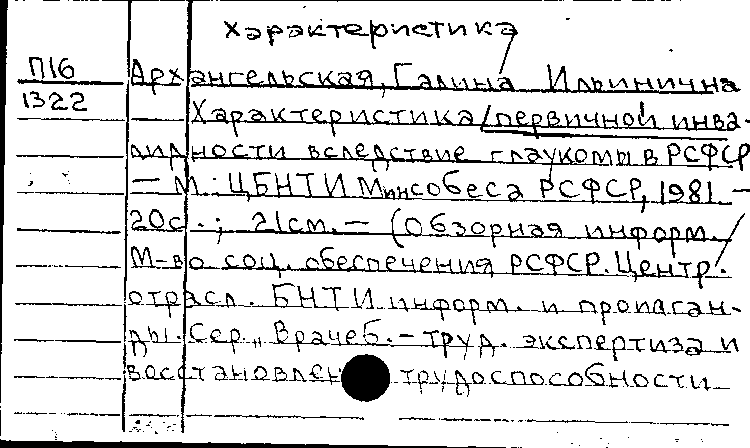 Характеристика
П16
1322
Архангельская, Галина Ильинична
Характеристика/первичной инва-
лидности вследствие глаукомы в РСФСР
— М.: ЦБНТИ Минсобеса РСФСР, 1981. —
20с.; 21см. — (Обзорная информ./
М-во соц. обеспечения РСФСР. Центр.
отрасл. БНТИ информ. и пропаган-
ды. Сер. „Врачеб.-труд. экспертиза и
восстановлен трудоспособности